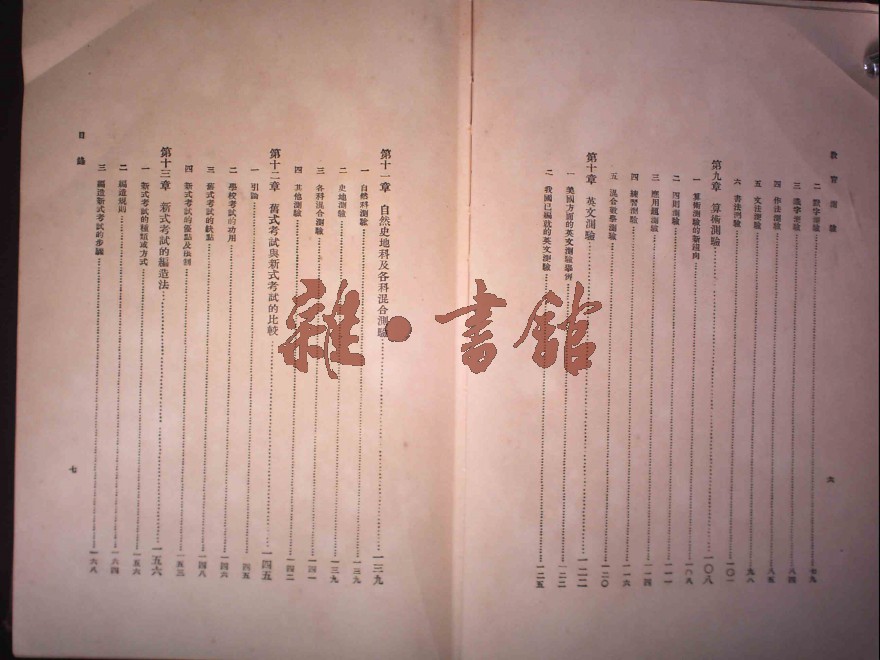 教育測驗
二 默字測驗 七九
三 識字測驗 八四
四 作法測驗 八五
五 文法測驗 九八
六 書法測驗 一〇一
第九章 算術測驗 一〇八
一 算術測驗的新趨向 一〇八
二 四則測驗 一一一
三 應用題測驗 一一四
四 練習測驗 一一六
五 混合數學測驗 一二〇
第十章 英文測驗 一二二
一 美國方面的英文測驗舉例 一二二
二 我國已編就的英文測驗 一二五
六
第十一章 自然史地科及各科混合測驗 一三九
一 自然科測驗 一三九
二 史地測驗 一三九
三 各科混合測驗 一四一
四 其他測驗 一四二
第十二章 舊式考試與新式考試的比較 一四五
一 引論 一四五
二 學校考試的功用 一四六
三 舊式考試的缺點 一四八
四 新式考試的優點及流弊 一五三
第十三章 新式考試的編造法 一五六
一 新式考試的種類或方式 一五六
二 編造規則 一六四
三 編造新式考試的步驟 一六八
目錄
七
雜·書館